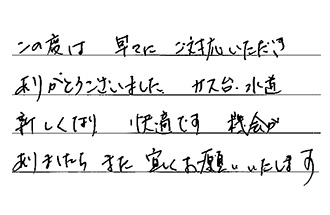 この度は 早々に ご対応いただき
ありがとうございました。 ガス台・水道
新しくなり 快適です 機会が
ありましたら また 宜しくお願いいたします